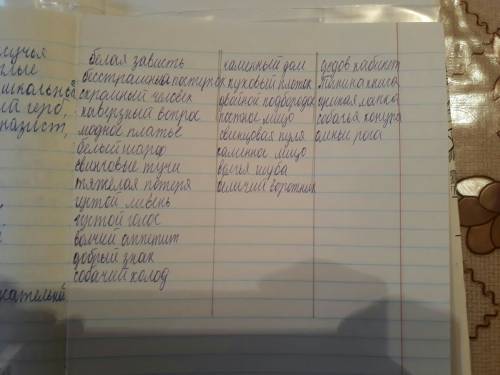 белая зависть
бесстрашный поступок
скромный человек
каверзный вопрос
модное платье
белый шарф
свинговые тучи
тяжёлая потеря
густой ливень
густой голос
волчий аппетит
добрый знак
собачий холод
каменный дом
пуховый платок
подбородо
постное лицо
свинцовая пуля
каменное лицо
волчья шуба
беличий воротник
дедов кабинет
книга
лапка
собачья конура
рога